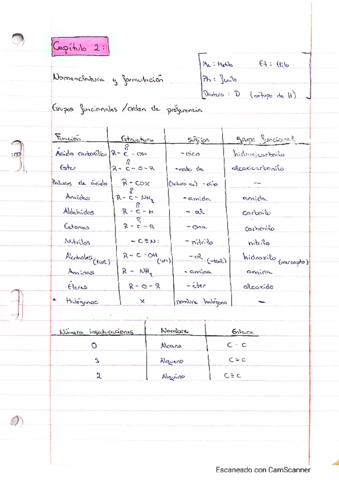 Capítulo 2:
Me: Metilo Et: Etilo
Nomenclatura y formulación
Ph: fenilo
Deuterio: D (isótopo de H)
Grupos funcionales / orden de preferencia
Función Estructura Sufijos grupo funcional
Ácido carboxílico R-C-OH -oico hidroxicarbonilo
Ester R-C-O-R -oato de alcoxicarbonilo
Haluros de ácido R-COX (haluro de) -oilo —
Amidas R-C-NH2 -amida amida
Aldehidos R-C-H -al carbonilo
Cetonas R-C-R -ona carbonilo
Nitrilos -C≡N: -nitrilo nitrilo
Alcoholes R-C-OH (SH) -ol (-tiol) hidroxilo (mercapto)
Aminas R-NH2 -amina amina
Éteres R-O-R -éter alcóxido
Halógenos X nombre halógeno —
Número insaturaciones Nombre Enlace
0 Alcano C-C
1 Alqueno C=C
2 Alquino C≡C
Escaneado con CamScanner